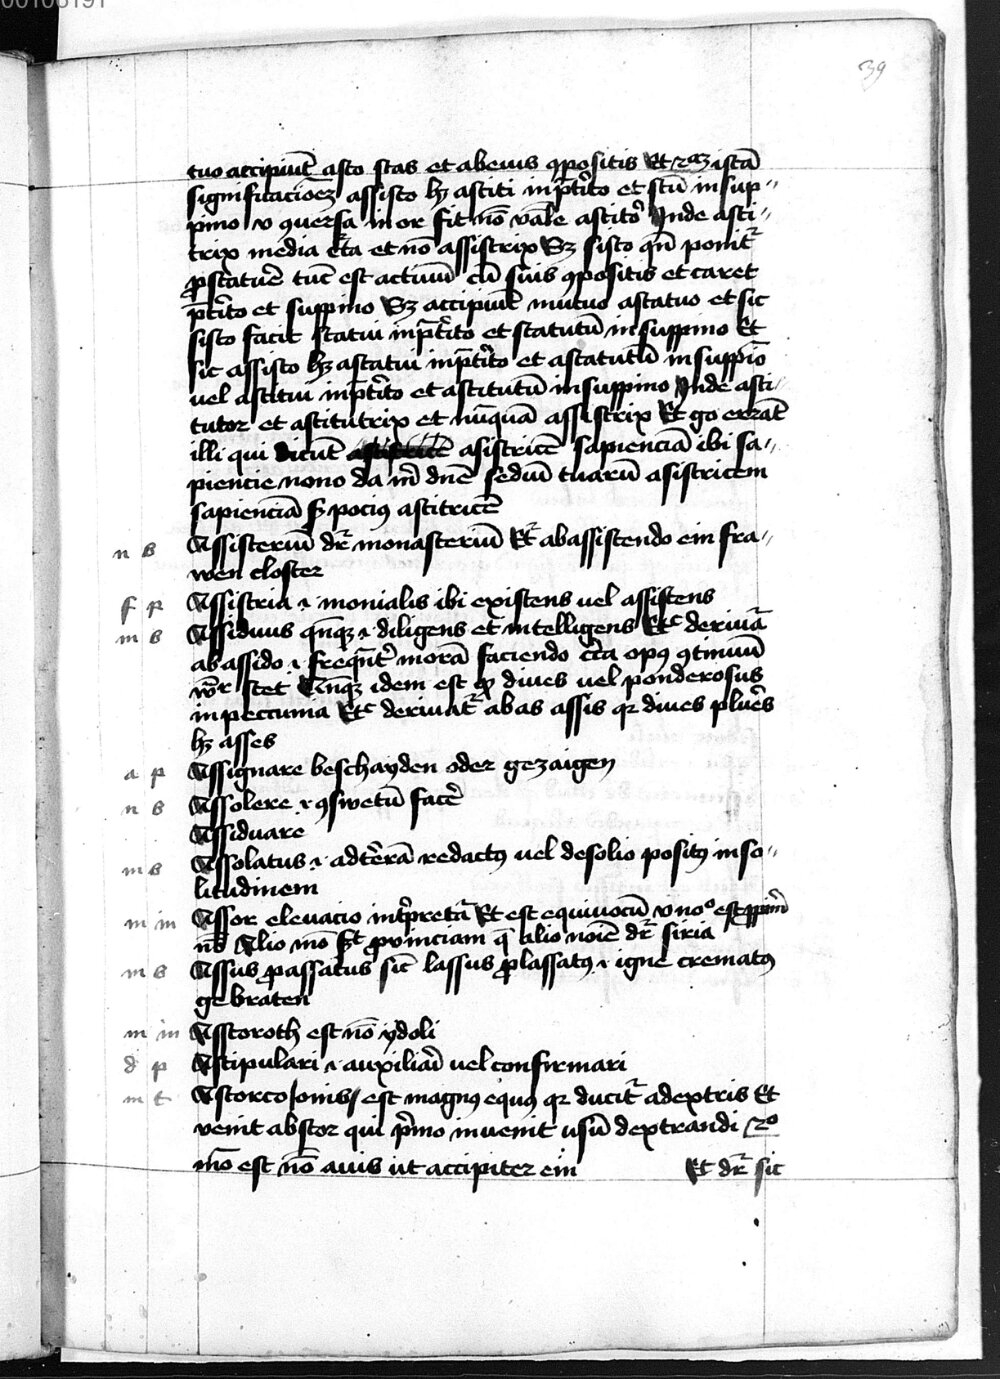 39
tuo accipiūt asto stas et abeius ꝯpositis Et istā
significacioēꝫ assisto hꝫ astiti inp̄trito et stū insup〃
pino v ꝯuersa in or fit nō vale astitor Inde asti〃
trix media cͣta et nō assistrix Sꝫ sisto qn̄ ponit᷑
ꝓstatuēˀ tūc est actiuū cū suis ꝯpositis et caret
p̄trito et suppino Sꝫ accipiūt mutuo astatuo et sic
sisto facit statui inp̄trito et statutū insuppino Et
sic assisto hꝫ astatui inp̄trito et astatutū insuppiō
uel astitui inp̄trito et astitutū insuppino Inde asti〃
tutor et astitutrix et nūquā assistrix Et go errāt
illi qui dicūt asistricē sapienciā ibi sa〃
piencie nono da m̄ dn̄e sediū tuarū asistricem
sapienciā sꝫ pocius astitricē
n s Assisteriū dr̄ monasteriū Et᷑ abassistendo ein fra〃
wen closter
f p Assistria ɪ monialis ibi existens uel assistens
m s Assiduus qn̄qꝫ ɪ diligens et intelligens Etᶜ deriuā
ab assido ɪ freqn̄t᷑ morā faciendo cͥca opus ꝯtinuū
stet Qn̄qꝫ idem est qd̄ diues uel ponderosus
inpeccunia Etᶜ deriuat᷑ abas assis qr diues plures
hꝫ asses
a p Assignare beschayden oder gezaigen
n s Assolere ɪ ꝯswetū facē
Assiduare
m s Assolatus ɪ adterrā redactꝰ uel desolio positꝰ inso〃
litudinem
m in Assor eleuacio intp̄retā Et est equiuocū vnoº est ꝓpriū
nō Alio mō st̄ ꝓuinciam q̄ alio noīe dr̄ siria
m s Assus ꝓassatus sic̄ lassus ꝓlassatꝰ ɪ igne crematꝰ
gebraten
m in Asstoroth est nō ydoli
d p Astipulari ɪ auxiliari uel confirmari
m t Astorco /onis/ est magnꝰ equꝰ qr ducit᷑ adextris Et
venit abstor qui p̄mo inuenit usū dextrandi 2º
mō est nō auis ut accipiter ein Et dr̄ sic